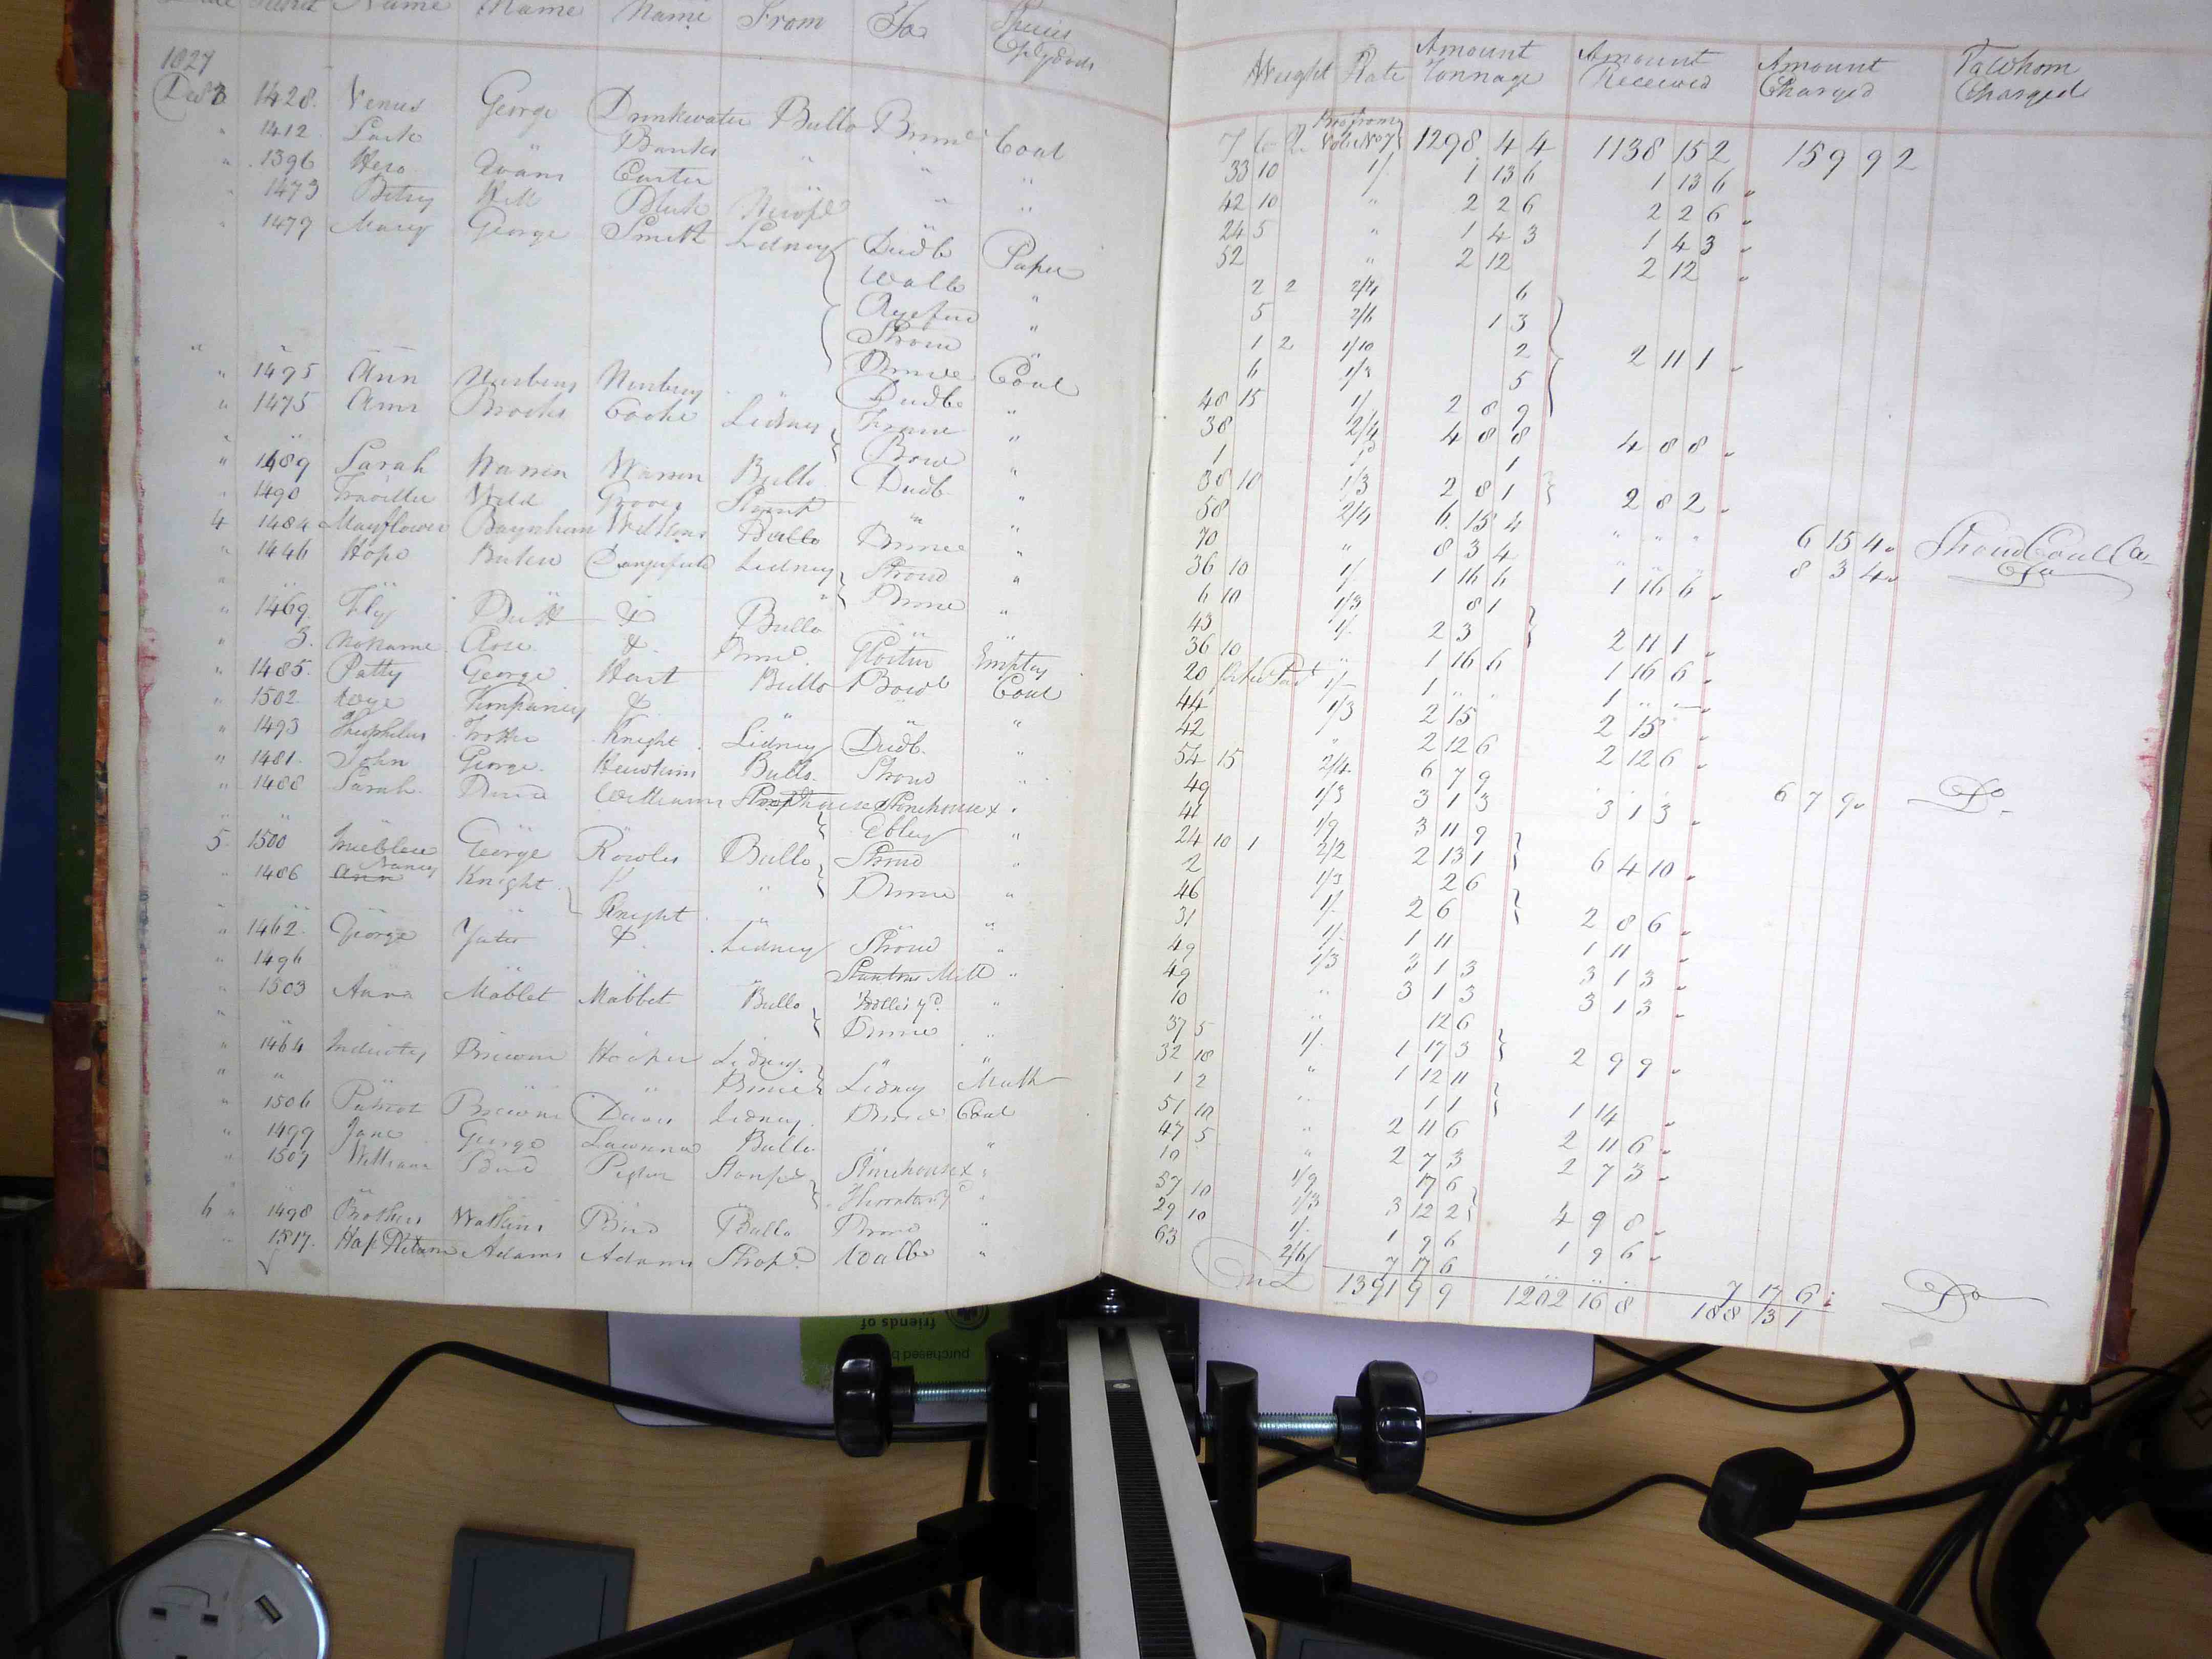 Name Name Name From To Species Of Goods
Weight Rate Amount Tonnage Amount Received Amount Charged To Whom Charged
1827
Decr 3 1428 Venus George Drinkwater Bullo Brimc Coal
" 1412 Lark " Banks
" 1396 Hero Evans Carter " " "
" 1473 Betsy Hill " "
" 1479 Mary George Smith Lidney Dudb Paper
Wallb "
Ryeford "
Stroud "
Brimc Coal
" 1495 Ann Dudb "
" 1475 Ann Brooks Cooke Lidney "
Bowb "
" 1489 Sarah Warren Warren Bullo Dudb "
" 1490 Traveller Weld Groves " "
4 1484 Mayflower Baynham Williams Bullo Brimc "
" 1446 Hope Dangerfield Lidney Stroud "
" Brimc "
" 1469 Fly Butt & Bullo " "
" 3 No Name Rose & Brimc Gloster Empty
" 1485 Patty George Hart Bullo Bowb Coal
" 1502 Wye Kompaney & " "
" 1493 Theophilus Trotter Knight Lidney Dudb "
" 1481 John George Hawkins Bullo Stroud "
" 1488 Sarah Williams Stonehouse x "
Ebley "
5 1500 George Rowles Bullo Stroud "
" 1486 Ann Nancy Knight " Brimc "
Knight " "
" 1462 George Yates & Lidney Stroud
" 1496 Stantons Mill "
" 1503 Anna Mabbet Mabbet Bullo "
Brimc "
" 1464 Industry Browne Hooper Lidney " "
" " " Brimc Lidney Malt
" 1506 Patriot Browne Davis Lidney Brimc Coal
" 1499 Jane George Lawrence Bullo " "
" 1507 William Bird Stonehouse x "
"
6 1498 Brothers Watkins Bird Bullo Brimc "
" 1517 Adams Adams Wallb "
1298 4 4 1138 15 2 159 9 2
33 10 1/ 1 13 6 1 13 6 "
42 10 " 2 2 6 2 2 6 "
24 5 " 1 4 3 1 4 3 "
52 " 2 12 2 12 "
2 2 2/4 6
5 2/6 1 3
1 2 1/10 2 2 11 1 "
6 1/3 5
48 15 1/ 2 8 9
38 2/4 4 8 8 4 8 8 "
1 1
38 10 1/3 2 8 1 2 8 2 "
58 2/4 6 15 4 " " " 6 15 4 Stroud Canal Co
70 " 8 3 4 " " " 8 3 4 Do
36 10 1/ 1 16 6 1 16 6 "
6 10 1/3 8 1
43 1/ 2 3 2 11 1 "
36 10 " 1 16 6 1 16 6 "
20 1/ 1 " " 1 " "
44 1/3 2 15 2 15 "
42 " 2 12 6 2 12 6 "
54 15 2/4 6 7 9 " " " 6 7 9 Do
49 1/3 3 1 3 3 1 3 "
41 1/9 3 11 9
24 10 1 2/2 2 13 1 6 4 10 "
2 1/3 2 6
46 1/ 2 6 2 8 6 "
31 1/ 1 11 1 11 "
49 1/3 3 1 3 3 1 3 "
49 " 3 1 3 3 1 3 "
10 " 12 6
37 5 1/ 1 17 3 2 9 9 "
32 18 " 1 12 11
1 2 " 1 1 1 14 "
51 10 " 2 11 6 2 11 6 "
47 5 " 2 7 3 2 7 3 "
10 1/9 17 6
57 10 1/3 3 12 2 4 9 8 "
29 10 1/ 1 9 6 1 9 6 "
63 2/6 7 17 6 " " " 7 17 6 Do
1391 9 9 1202 16 8 188 13 1
friends of
purchased b